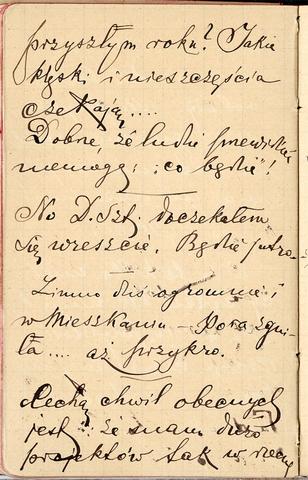 przyszłym roku? Jakie
klęski i nieszczęścia
czekają....
Dobrze, że ludzie przewidzieć
niemogą: "co będzie"!
No D. Szt. doczekałem
się wreszcie. Będzie jutro-
Zimno dziś ogromne i
w Mieszkaniu – Pora zgni-
ła.... aż przykro.
Cechą chwil obecnych
jest: że mam dużo
projektów tak w rzeczy